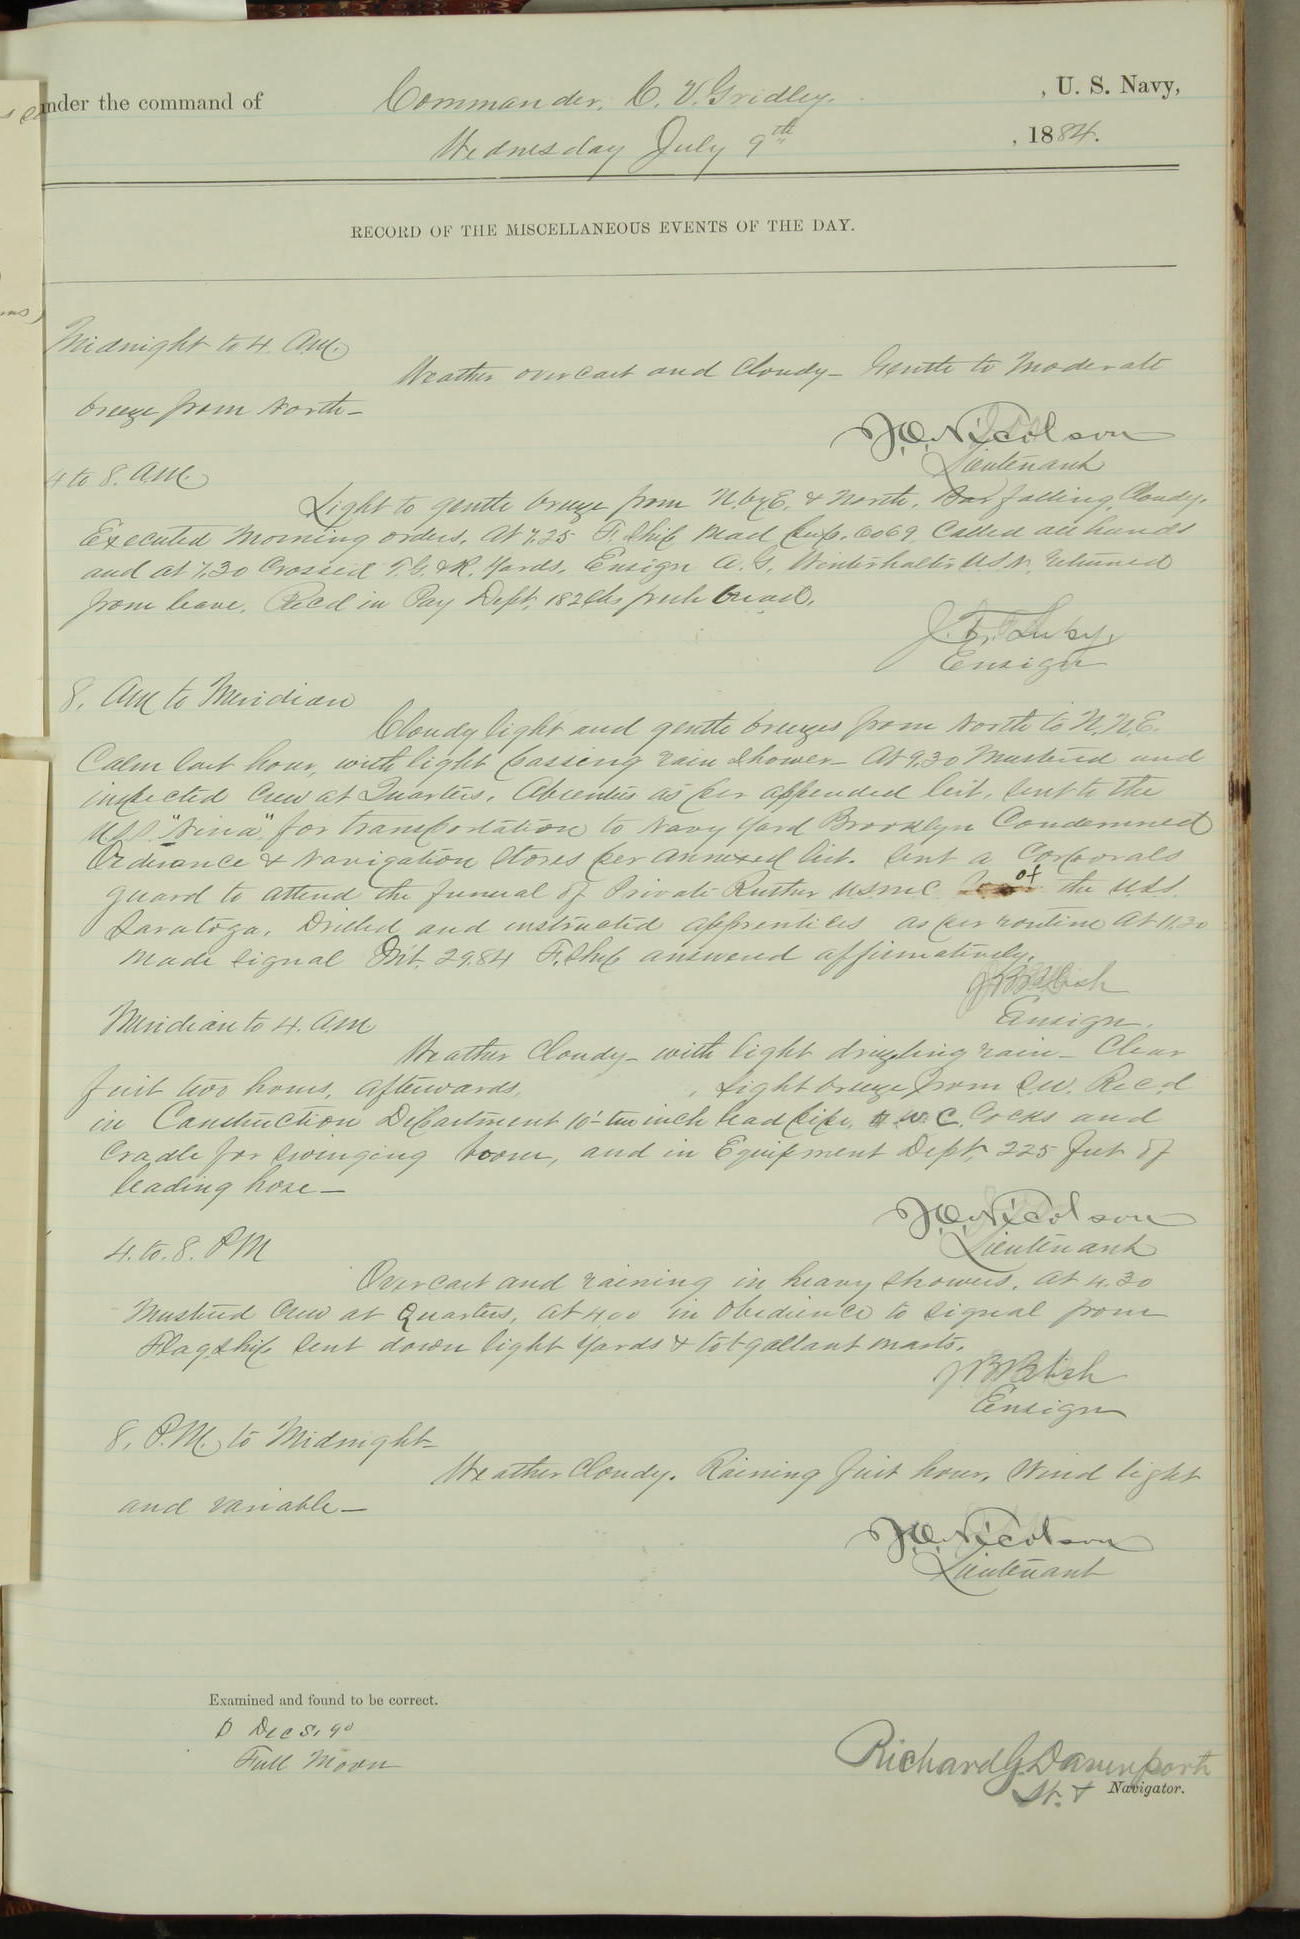 under the command of Commander, C. V. Gridley. , U. S. Navy,
Wednesday July 9th , 1884.
RECORD OF THE MISCELLANEOUS EVENTS OF THE DAY.
Midnight to 4. AM.
Weather overcast and Cloudy— Gentle to Moderate
breeze from North—
J.O. Nicolson
Lieutenant
4 to 8. AM.
Light to gentle breeze from N. by E. & North. Bar falling, Cloudy.
Executed Morning orders. At 7.25 F. Ship Mad Sup. 6069 Called all hands
and at 7.30 Crossed T. G. & R. Yards. Ensign A. G. Winterhalter U.S.N. returned
from leave. Rec'd in Pay Dept. 182 lbs fresh bread.
Ensign
8. AM to Meridian
Cloudy light and gentle breezes from North to N.N.E.
Calm last hour, with light passing rain shower— At 9.30 Mustered and
inspected Crew at Quarters. Absentees as per appended list. Sent to the
U.S.S. "Nina" for transportation to Navy Yard Brooklyn Condemned
Ordnance & Navigation Stores per annexed list. Sent a Corporals
guard to attend the funeral of Private Rutter U.S.M.C. of the U.S.S.
Saratoga. Drilled and instructed apprentices as per routine At 11.30
made signal Int. 2984 F. Ship answered affirmatively.
Ensign.
Meridian to 4. AM
Weather Cloudy— with light drizzling rain— Clear
first two hours, afterwards, , Light breeze from S.W. Rec'd
in Construction Department 10' ten inch lead pipe, W. C. Cocks and
Cradle for swinging boom, and in Equipment Dept. 225 feet of
leading hose—
J.O. Nicolson
Lieutenant
4. to. 8. PM
Overcast and raining in heavy showers. At 4.30
Mustered Crew at Quarters, at 4.00 in obedience to signal from
Flagship sent down light yards & top-gallant masts.
Ensign
8. P.M. to Midnight—
Weather Cloudy. Raining first hour, Wind light
and variable—
J.O. Nicolson
Lieutenant
Examined and found to be correct.
D Dec 8, 90
Full Moon
Richard G Davenport
Lt. & Navigator.